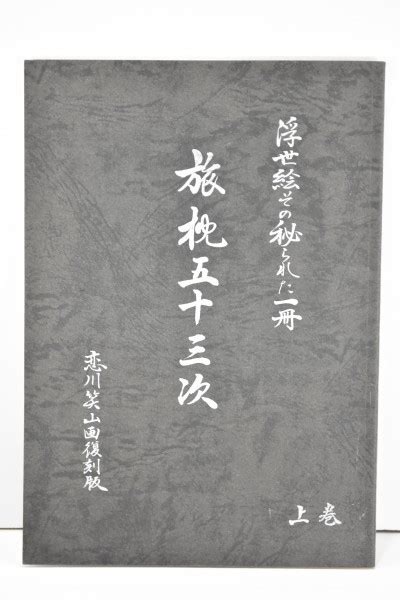 浮世絵その秘られた一冊
旅枕五十三次
恋川笑山画復刻版
上巻